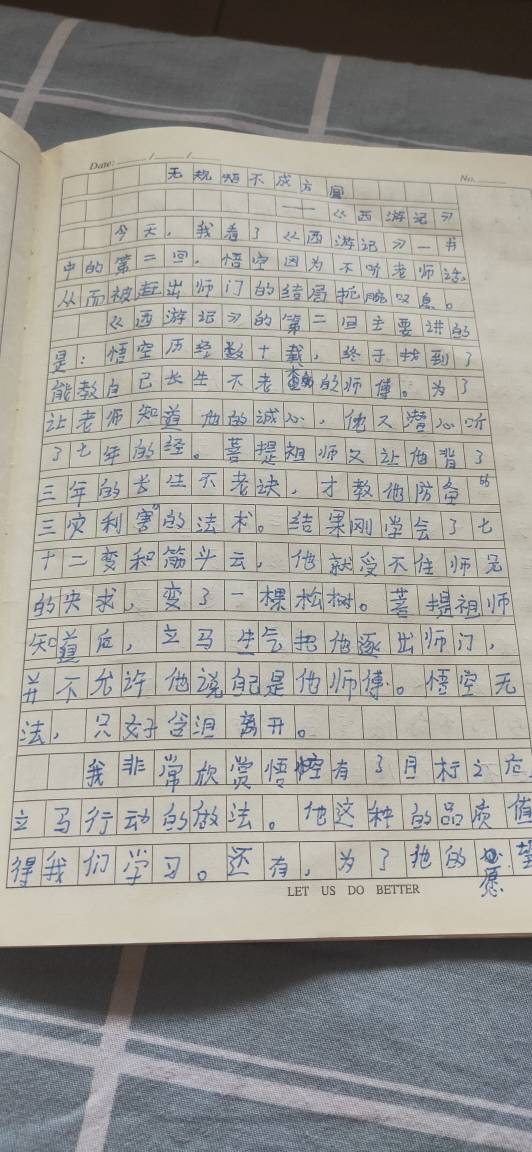 Date: / /
No.
无规矩不成方圆
——《西游记》
今天，我看了《西游记》一书
中的第二回，悟空因为不听老师话，
从而被赶出师门的结局扼腕叹息。
《西游记》的第二回主要讲的
是：悟空历经数十载，终于找到了
能教自己长生不老的师傅。为了
让老师知道他的诚心，他又潜心听
了七年的经。菩提祖师又让他背了
三年的长生不老诀，才教他防备
三灾利害的法术。结果刚学会了七
十二变和筋斗云，他就受不住师兄
的央求，变了一棵松树。菩提祖师
知道后，立马生气把他逐出师门，
并不允许他说自己是他师傅。悟空无
法，只好含泪离开。
我非常欣赏悟空有了目标之后
立马行动的做法。他这种的品质值
得我们学习。还有，为了他的愿望
LET US DO BETTER